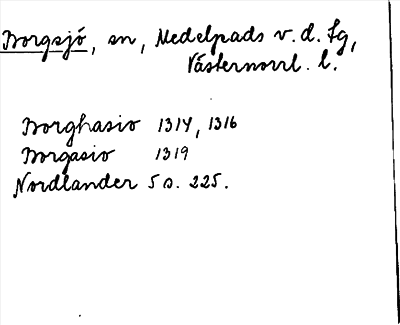 Borgsjö, sn, Medelpads v. d. fg,
Västernorrl. l.
Borghasio 1314, 1316
Borgasio 1319
Nordlander 5 s. 225.